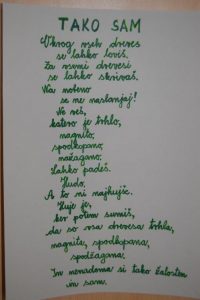 TAKO SAM
Okrog vseh dreves
se lahko loviš.
Za vsemi drevesi
se lahko skrivaš.
Na nobeno
se ne naslanjaj!
Ne veš,
katero je trhlo,
nagnito,
spodkopano,
nažagano.
Lahko padeš.
Hudo.
A to ni najhujše.
Huje je,
ker potem sumiš,
da so vsa drevesa trhla,
nagnita, spodkopana,
spodžagana.
In nenadoma si tako žalosten
in sam.